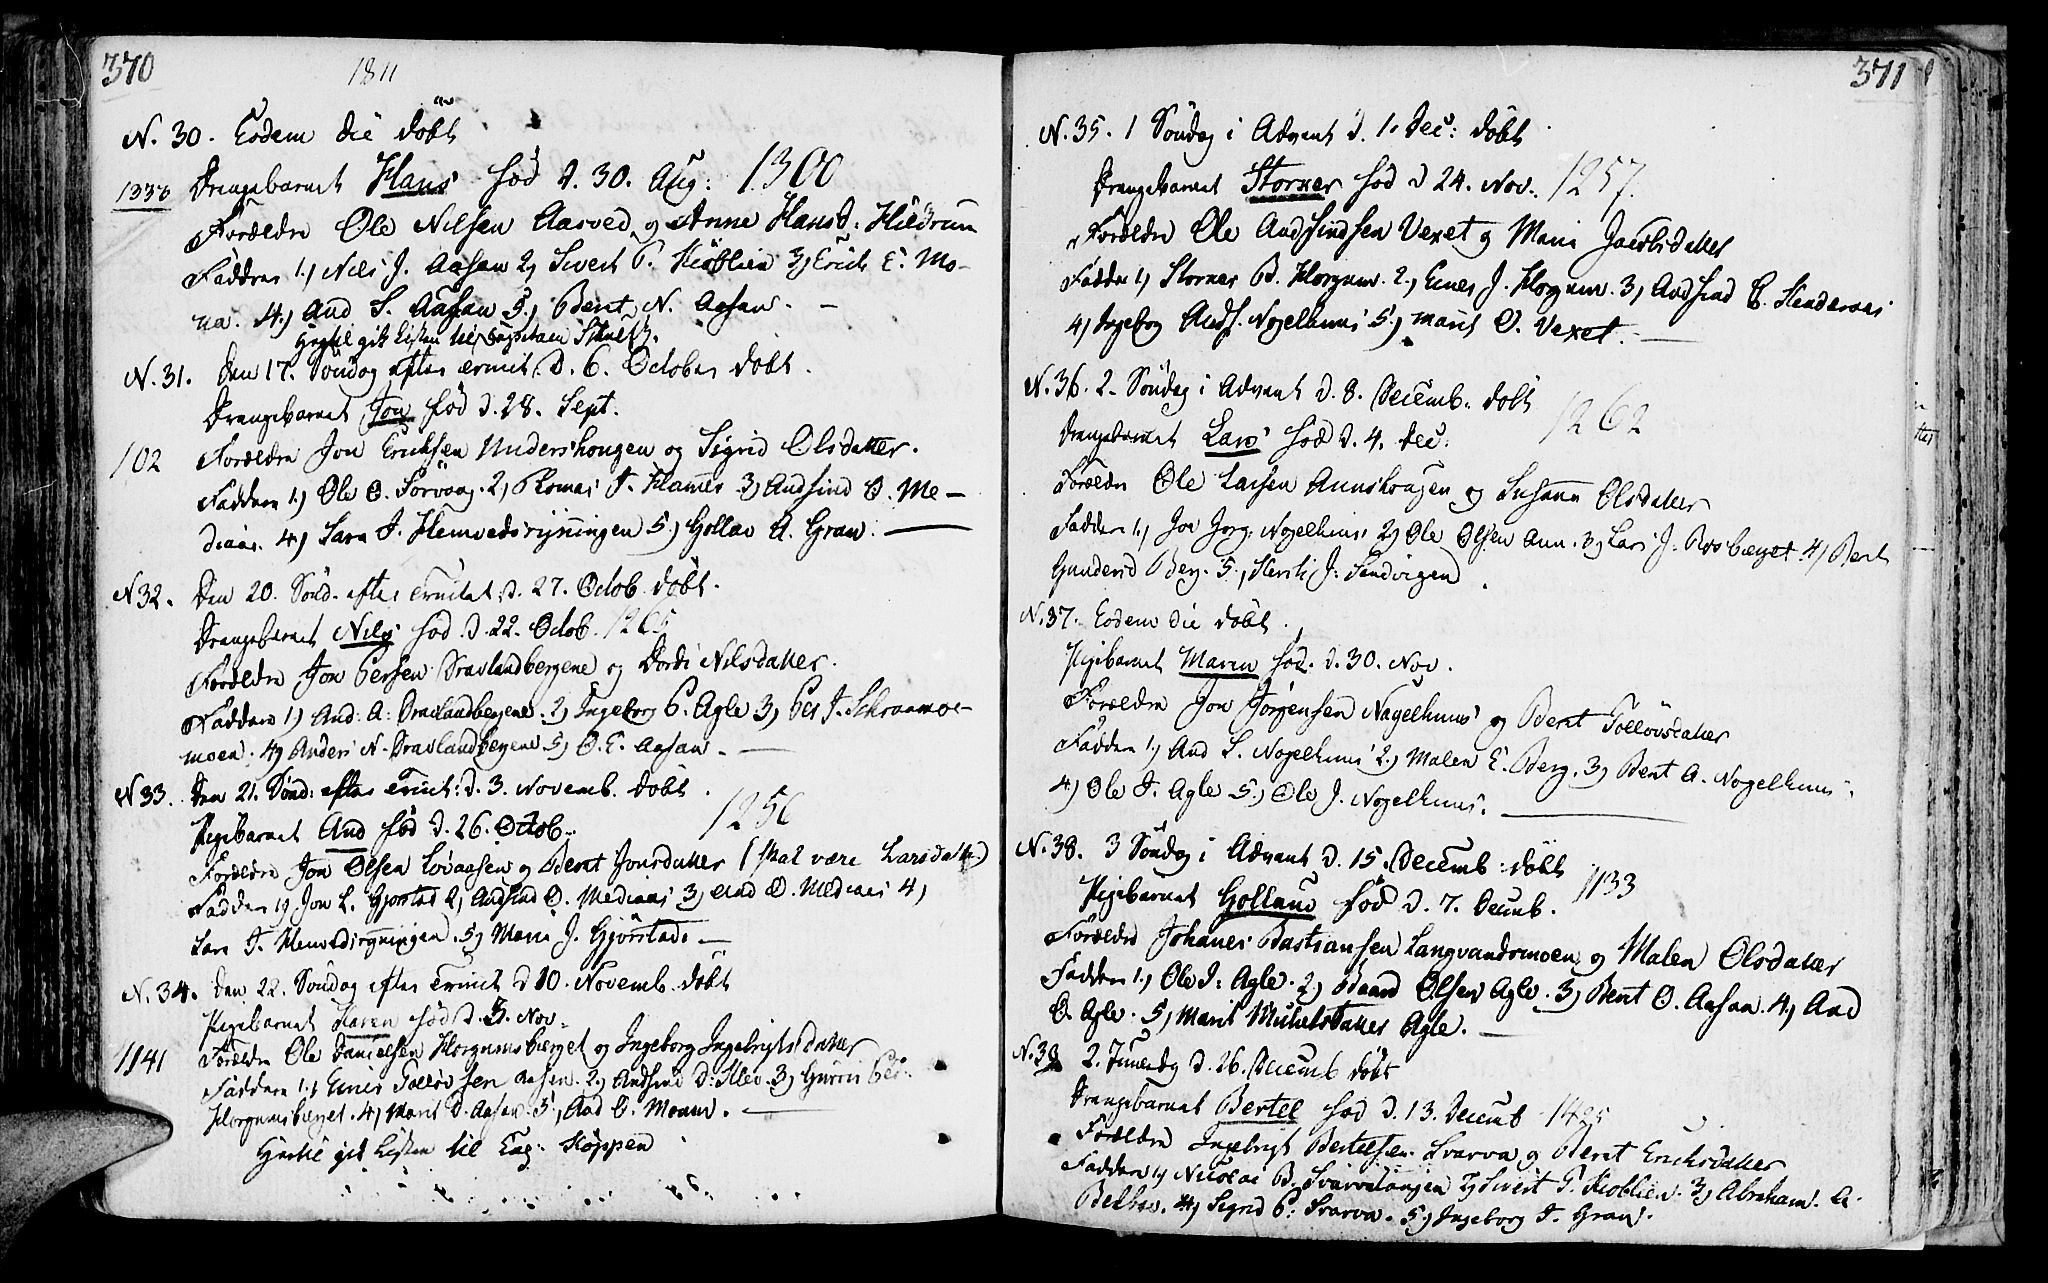 370
1811
N. 30. Eodem die døbt
1338 Drengebarnet Hans fød d. 30. Aug: 1300
Forældre Ole Nilsen Aasved og Anne Hansd: Hildrum
Faddere 1, Nils J. Aasen 2, Sivert P. Kioblien 3, Erich E. Mo-
na. 4, And S. Aassen 5, Berit N. Aasen. —
Hertil gik Listen til Capitain Schultz.
N. 31. Den 17. Søndag efter Trinit. d. 6. October døbt.
Drengebarnet Jon fød d. 28. Sept.
102 Forældre Jon Erichsen Undershougen og Sigrid Olsdatter.
Faddere 1, Ole O. Forvaag. 2, Thomas J. Hammer 3, Andsind O. Me-
diaas. 4, Sara J. Hemvedsrygningen 5, Gollau A. Gran. —
N 32. Den 20. Sønd. efter Trinitat: d. 27. Octob. døbt.
Drengebarnet Nils fød d. 22. Octob. 1265
Forældre Jon Persen Dravlandbergene og Dordi Nilsdatter.
Faddere 1, And: A: Dravlandbergene. 2, Ingeborg P. Agle 3, Per J. Schromoe-
moen. 4, Anders N. Dravlandbergene. 5, O. E. Aasan. —
N 33. Den 21. Sønd: efter Trinit: d. 3. Novemb. døbt.
Pigebarnet And fød d. 26. Octob. 1256
Forældre Jon Olsen Lovaasen og Berit Jonsdatter (skal være Larsdatter)
Faddere 1, Jon L. Gjørstad 2, Andsind O. Mediaas 3, And O. Mediaas 4,
Sara J. Hemvedsrygningen. 5, Maria J. Gjørstad. —
N. 34. Den 22. Søndag efter Trinit d 10. Novemb. døbt
Pigebarnet Karen fød d. 3. Nov.
1141 Forældre Ole Danielsen Horgumsberget og Ingeborg Ingebrigtsdatter
Faddere 1, Enis Tolløvsen Aasen. 2, Andsind D: Klev. 3, Guroe Per:
Horgumsberget. 4, Marit D. Aasen. 5, And O. Moum. —
Hertil gik Listen til Cap: Køppen
371
N. 35. 1 Søndag i Advent d. 1. Dec: døbt
Drengebarnet Storker fød d 24. Nov. 1257.
Forældre Ole Andsindsen Vexet og Maria Jacobsdatter
Faddere 1, Storker B. Horgum. 2, Enis J. Horgum. 3, Andsind E.
4, Ingeborg Ands. Nagelhuus 5, Marit O. Vexet. —
N. 36. 2. Søndag i Advent d. 8. Decemb. døbt
Drengebarnet Lars fød d. 4. Dec: 1262
Forældre Ole Larsen Aunshougen og Susanna Olsdatter
Faddere 1, Jon Jørg. Nagelhuus 2, Ole Olsen Aun. 3, Lars J. 4, Berit
Gundersd Berg. 5, Kersti J. Sandvigen.
N. 37. Eodem die døbt.
Pigebarnet Maren fød d. 30. Nov.
Forældre Jon Jørgensen Nagelhuus og Berit Tolløvsdatter
Faddere 1, And L. Nagelhuus 2, Malen E. Berg. 3, Berit A. Nagelhuus.
4, Ole J. Agle 5, Ole J. Nagelhuus. —
N. 38. 3 Søndag i Advent d. 15. Decemb: døbt
Pigebarnet Gollaug fød d. 7. Decemb. 1133
Forældre Johanes Bastiansen Langvandsmoen og Malen Olsdatter
Faddere 1, Ole J: Agle. 2, Baard Olsen Agle. 3, Berit O. Aasan. 4, And
O. Agle. 5, Marit Michelsdatter Agle. —
N. 39 2. Juuledag d. 26. Decemb døbt
Drengebarnet Bertel fød d. 13. Decemb 1425
Forældre Ingebrigt Bertelsen Svarva og Berit Erichsdatter
Faddere 1, Nicolai B. 2, Sivert P. Kioblien. 3, Abraham. A.
4, Sigrid P. Svarva. 5, Ingeborg J. Gran.